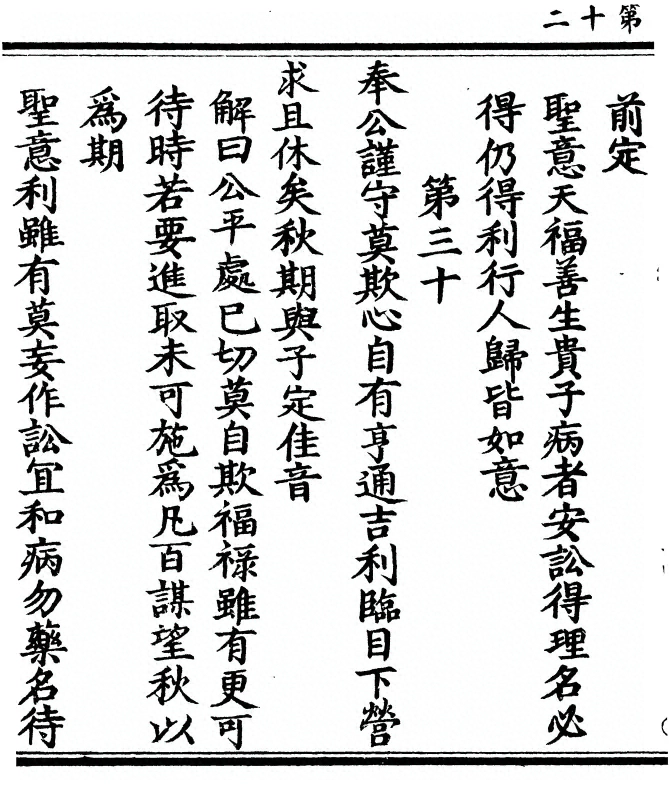 第十二
前定
聖意天福善生貴子病者安訟得理名必
得仍得利行人歸皆如意
第三十
奉公謹守莫欺心自有亨通吉利臨目下營
求且休矣秋期與子定佳音
解曰公平處已切莫自欺福祿雖有更可
待時若要進取未可施爲凡百謀望秋以
爲期
聖意利雖有莫妄作訟宜和病勿藥名待